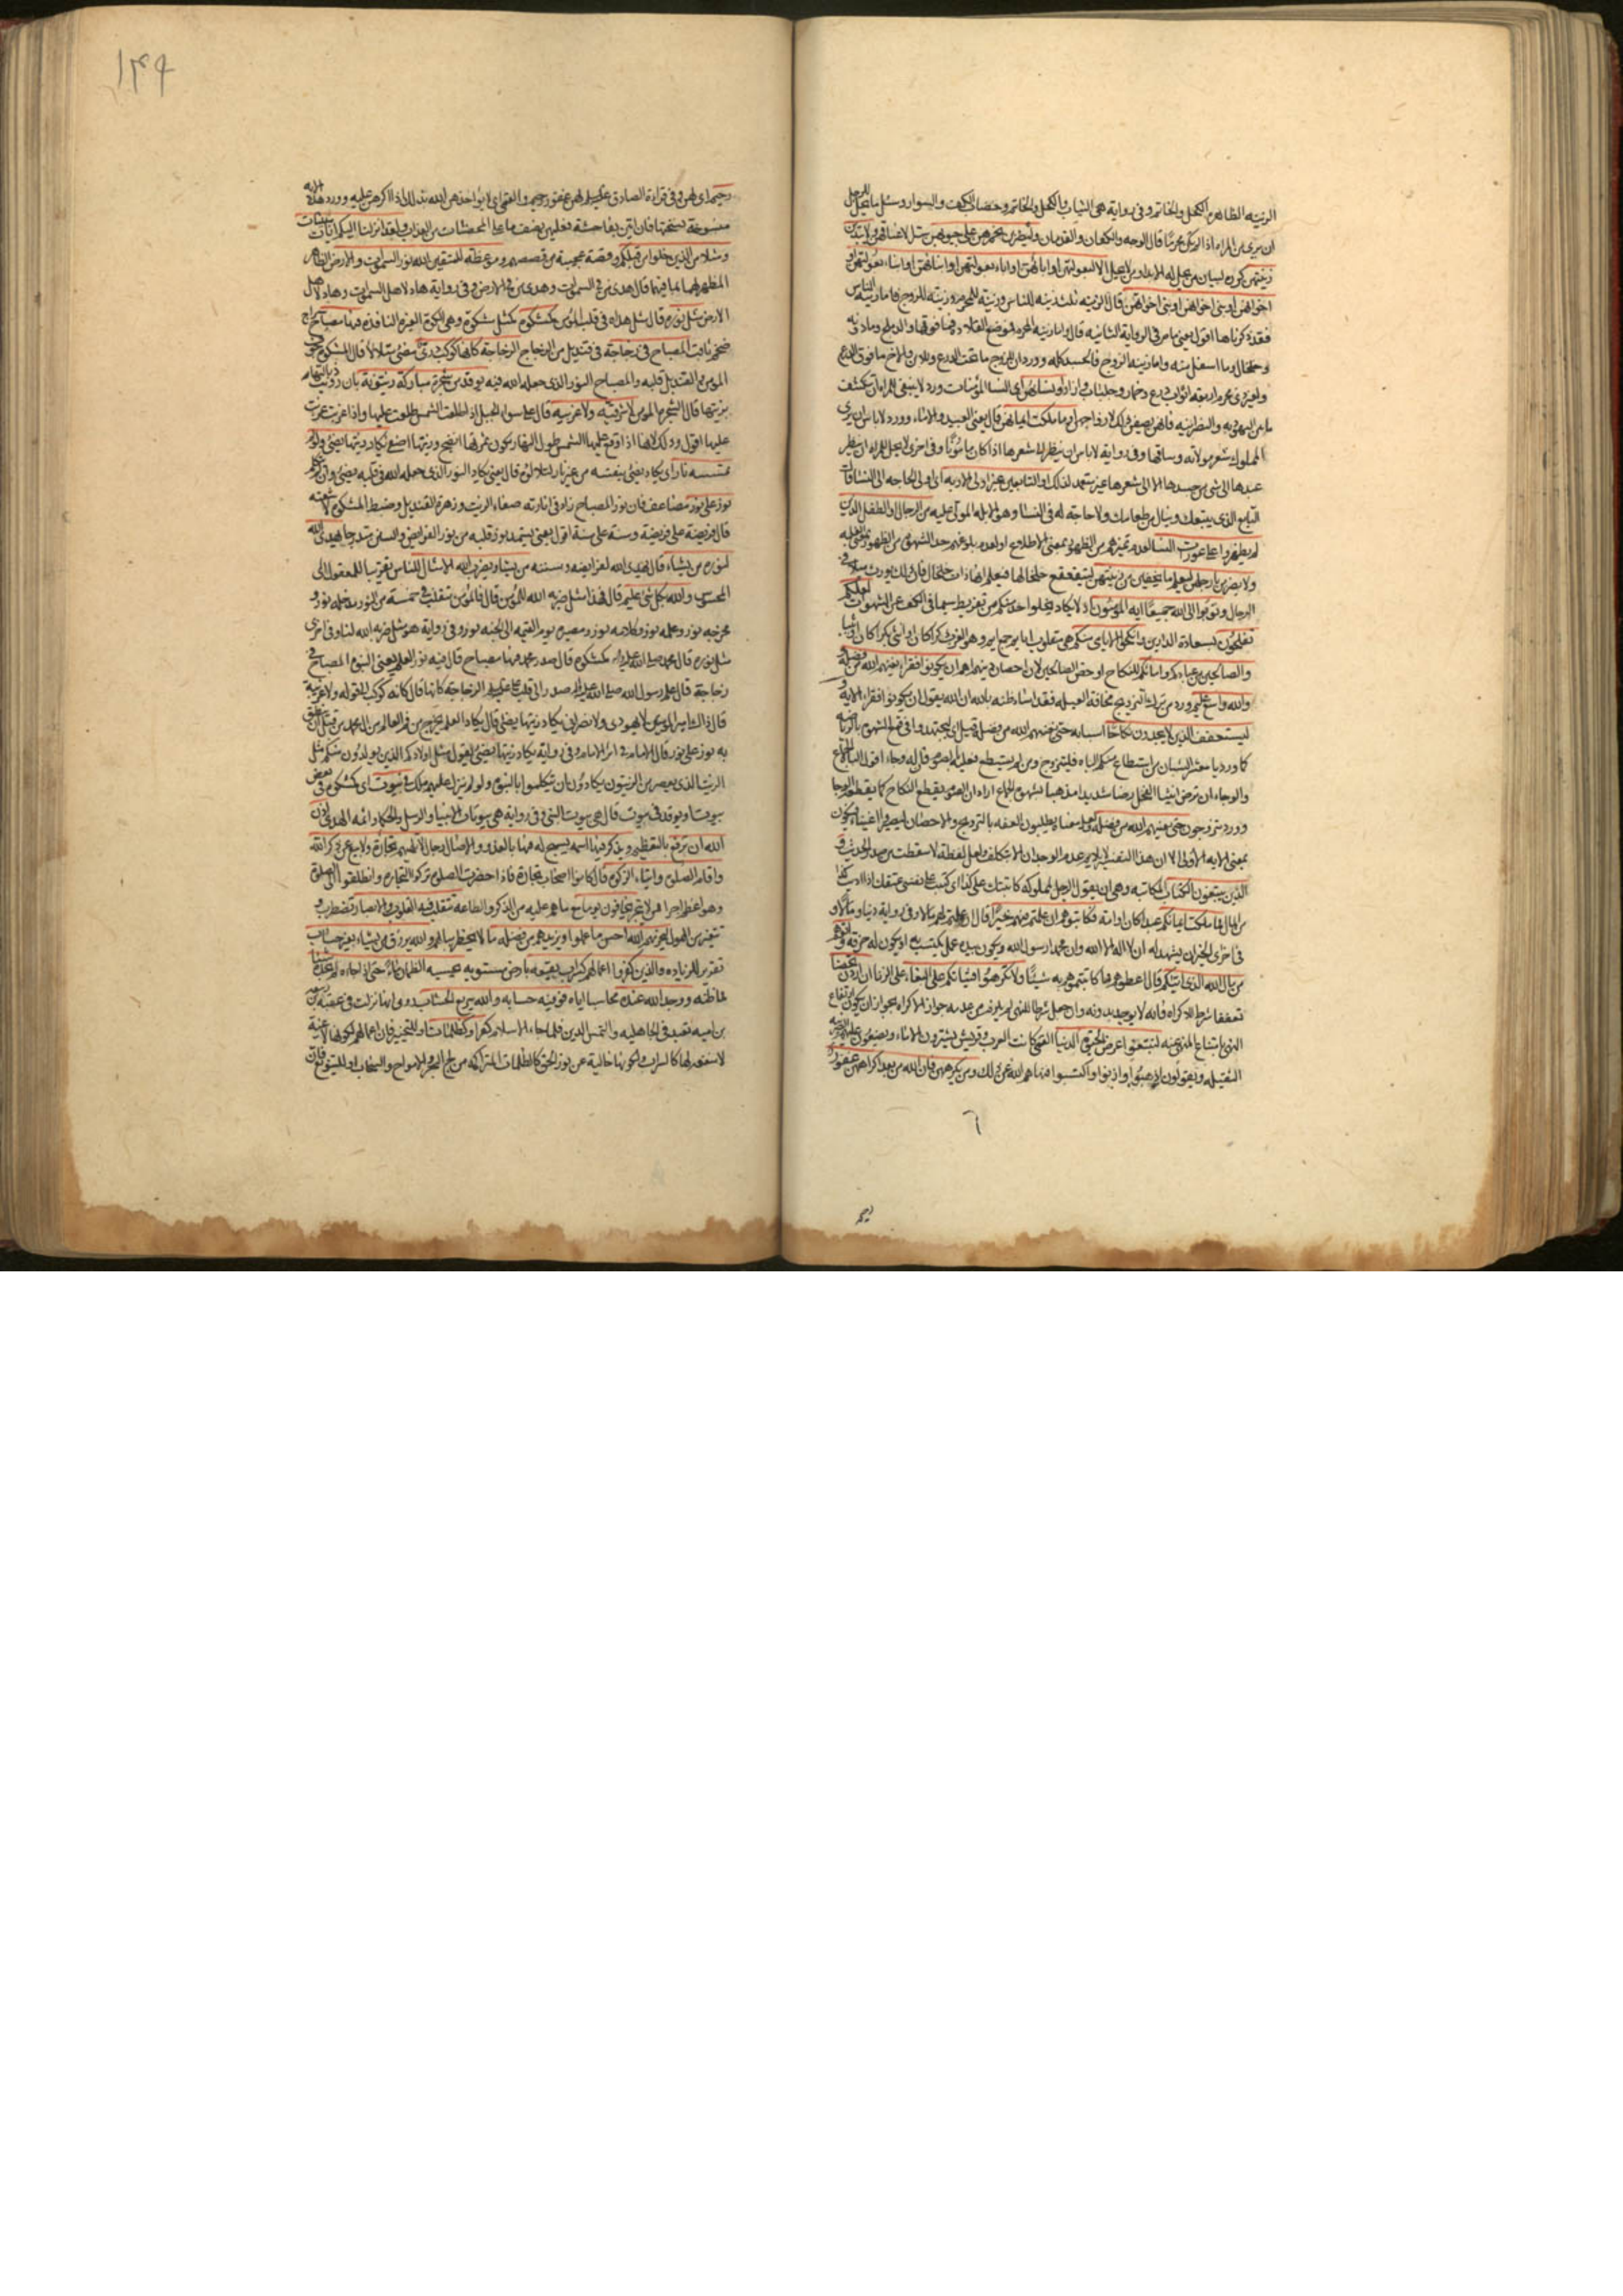 الزينة الظاهرة الكحل والخاتم وفي رواية هي الثياب والكحل والخاتم وخضاب الكف والسوار وسئل ما يحل للرجل
ان يرى من المراة اذا لم يكن محرما قال الوجه والكفان والقدمان وليضربن بخمرهن على جيوبهن ولا يبدين
زينتهن كرره لبيان من يحل له الابداء ومن لا يحل الا لبعولتهن او ابائهن او اباء بعولتهن او ابنائهن او ابناء بعولتهن او
اخوانهن او بني اخوانهن او بني اخواتهن قال الزينة ثلث زينة للناس وزينة للمحرم وزينة للزوج فاما زينة الناس
فقد ذكرناها اقول يعني ما مر في الرواية الثانية قال واما زينة المحرم فموضع القلادة فما فوقها والدملج وما دونه
والخلخال وما اسفل منه واما زينة الزوج فالجسد كله وورد ان للزوج ما تحت الدرع وللابن والاخ ما فوق الدرع
ولغير ذي محرم اربعة اثواب درع وخمار وجلباب وازار او نسائهن اي النساء المؤمنات ورد لا ينبغي للمراة ان تنكشف
ما بين اليهودية والنصرانية فانهن يصفن ذلك لازواجهن او ما ملكت ايمانهن قال يعني العبيد والاماء وورد لا باس ان يرى
المملوك شعر مولاته وساقها وفي رواية لا باس ان ينظر الى شعرها اذا كان مامونا وفي اخرى لا يحل للمراة ان ينظر
عبدها الى شيء من جسدها الا الى شعرها غير متعمد لذلك او التابعين غير اولي الاربة اي اولي الحاجة الى النساء قال
التابع الذي يتبعك وينال من طعامك ولا حاجة له في النساء وهو الابله المولى عليه من الرجال او الطفل الذين
لم يظهروا على عورات النساء لعدم تميزهم من الظهور بمعنى الاطلاع او لعدم بلوغهم حد الشهوة من الظهور بمعنى الغلبة
ولا يضربن بارجلهن ليعلم ما يخفين من زينتهن ليتقعقع خلخالها فيعلم انها ذات خلخال فان ذلك يورث ميلا في
الرجال وتوبوا الى الله جميعا ايه المؤمنون اذ لا يكاد يخلو احد منكم من تفريط سيما في الكف عن الشهوات لعلكم
تفلحون بسعادة الدارين وانكحوا الايامى منكم هي مقلوب ايايم جمع ايم وهو العزب ذكرا كان او انثى بكرا كان او ثيبا
والصالحين من عبادكم وامائكم للنكاح او خص الصالحين لان احصان دينهم اهم ان يكونوا فقراء يغنهم الله من فضله
والله واسع عليم ورد من ترك التزويج مخافة العيلة فقد اساء ظنه بالله ان الله يقول ان يكونوا فقراء الاية و
ليستعفف الذين لا يجدون نكاحا اسبابه حتى يغنيهم الله من فضله قيل اي ليجتهدوا في قمع الشهوة بالرياضة
كما ورد يا معشر الشبان من استطاع منكم الباه فليتزوج ومن لم يستطع فعليه بالصوم فانه له وجاء اقول الباه الجماع
والوجاء ان ترض انثيا الفحل رضا شديدا يذهب بشهوة الجماع اراد ان الصوم يقطع النكاح كما يقطعه الوجا
وورد يتزوجون حتى يغنيهم الله من فضله ولعل معناه يطلبون العفة بالتزويج والاحصان ليصيروا اغنياء فيكون
بمعنى الاية الاولى الا ان هذا التفسير لا يلايم عدم الوجدان الا بتكلف ولعل لفظة لا سقطت من صدر الحديث و
الذين يبتغون الكتاب المكاتبة وهي ان يقول الرجل لمملوكه كاتبتك على كذا اي كتبت على نفسي عتقك اذا اديت كذا
من المال مما ملكت ايمانكم عبدا كان او امة فكاتبوهم ان علمتم فيهم خيرا قال ان علمتم لهم مالا وفي رواية دينا ومالا و
في اخرى الخير ان يشهد ان لا اله الا الله وان محمدا رسول الله ويكون بيده عمل يكتسب به او يكون له حرفة واتوهم
من مال الله الذي اتيكم قال اعطوهم مما كاتبتموهم به شيئا ولا تكرهوا فتياتكم على البغاء على الزنا ان اردن تحصنا
تعففا شرط للاكراه فانه لا يوجد بدونه وان جعل شرطا للنهي لم يلزم من عدمه جواز الاكراه لجواز ان يكون ارتفاع
النهي بامتناع المنهي عنه لتبتغوا عرض الحيوة الدنيا القمي كانت العرب وقريش يشترون الاماء ويضعون عليهم الضريبة
الثقيلة ويقولون اذهبوا وازنوا واكتسبوا فنهاهم الله عن ذلك ومن يكرههن فان الله من بعد اكراههن غفور
٦
رحيم
١٣٩
رحيم اي لهن وفي قراءة الصادق عليه السلام لهن غفور رحيم والقمي اي لا يؤاخذهن الله بذلك اذا اكرهن عليه وورد هذه الاية
منسوخة نسختها فان اتين بفاحشة فعليهن نصف ما على المحصنات من العذاب ولقد انزلنا اليكم ايات مبينات
ومثلا من الذين خلوا من قبلكم وقصة عجيبة من قصصهم وموعظة للمتقين الله نور السموات والارض الظاهر
المظهر لهما بما فيهما قال هدى من في السموات وهدى من في الارض وفي رواية هاد لاهل السموات وهاد لاهل
الارض مثل نوره قال مثل هداه في قلب المؤمن كمشكوة كمثل مشكوة وهي الكوة الغير النافذة فيها مصباح سراج
ضخم ثاقب المصباح في زجاجة في قنديل من الزجاج الزجاجة كانها كوكب دري مضيء متلالا قال المشكوة جوف
المؤمن والقنديل قلبه والمصباح النور الذي جعله الله فيه يوقد من شجرة مباركة زيتونة بان رويت ذبالتها
بزيتها قال الشجرة المؤمن لا شرقية ولا غربية قال على سواء الجبل اذا طلعت الشمس طلعت عليها واذا غربت غربت
عليها اقول وذلك لانها اذا وقع عليها الشمس طول النهار يكون ثمرتها انضج وزيتها اصفى يكاد زيتها يضيء ولو لم
تمسسه نار اي يكاد يضيء بنفسه من غير نار لتلالؤه قال يعني يكاد النور الذي جعله الله في قلبه يضيء وان لم يتكلم
نور على نور مضاعف فان نور المصباح زاد في انارته صفاء الزيت وزهرة القنديل وضبط المشكوة لاشعته
قال فريضة على فريضة وسنة على سنة اقول يعني يستمد نور قلبه من نور الفرايض والسنن متدرجا يهدي الله
لنوره من يشاء قال يهدي الله لفرايضه وسننه من يشاء ويضرب الله الامثال للناس تقريبا للمعقول الى
المحسوس والله بكل شيء عليم قال فهذا مثل ضربه الله للمؤمن قال فالمؤمن يتقلب في خمسة من النور مدخله نور و
مخرجه نور وعلمه نور وكلامه نور ومصيره يوم القيمة الى الجنة نور وفي رواية هو مثل ضربه الله لنا وفي اخرى
مثل نوره قال محمد صلى الله عليه واله كمشكوة قال صدر محمد فيها مصباح قال فيه نور العلم يعني النبوة المصباح في
زجاجة قال علم رسول الله صلى الله عليه واله صدر الى قلب علي عليه السلام الزجاجة كانها قال كانه كوكب الى قوله ولا غربية
قال ذاك امير المؤمنين لا يهودي ولا نصراني يكاد زيتها يضيء قال يكاد العلم يخرج من فم العالم من ال محمد من قبل ان ينطق
به نور على نور قال الامام في اثر الامام وفي رواية يكاد زيتها يضيء يقول مثل اولادكم الذين يولدون منكم مثل
الزيت الذي يعصر من الزيتون يكادون ان يتكلموا بالنبوة ولو لم ينزل عليهم ملك في بيوت اي كمشكوة في بعض
بيوت او يوقد في بيوت قال هي بيوت النبي وفي رواية هي بيوتات الانبياء والرسل والحكماء وائمة الهدى اذن
الله ان ترفع بالتعظيم ويذكر فيها اسمه يسبح له فيها بالغدو والاصال رجال لا تلهيهم تجارة ولا بيع عن ذكر الله
واقام الصلوة وايتاء الزكوة قال كانوا اصحاب تجارة فاذا حضرت الصلوة تركوا التجارة وانطلقوا الى الصلوة
وهم اعظم اجرا ممن لا يتجر يخافون يوما مع ما هم عليه من الذكر والطاعة تتقلب فيه القلوب والابصار تضطرب و
تتغير من الهول ليجزيهم الله احسن ما عملوا ويزيدهم من فضله ما لا يخطر ببالهم والله يرزق من يشاء بغير حساب
تقرير للزيادة والذين كفروا اعمالهم كسراب بقيعة بارض مستوية يحسبه الظمان ماء حتى اذا جاءه لم يجده شيئا
مما ظنه ووجد الله عنده محاسبا اياه فوفيه حسابه والله سريع الحساب روي انها نزلت في عتبة بن ربيعة
بن امية تعبد في الجاهلية والتمس الدين فلما جاء الاسلام كفر او كظلمات او للتخيير فان اعمالهم لكونها لاغية
لا منفعة لها كالسراب ولكونها خالية عن نور الحق كالظلمات المتراكمة من لج البحر والامواج والسحاب او للتنويع فان